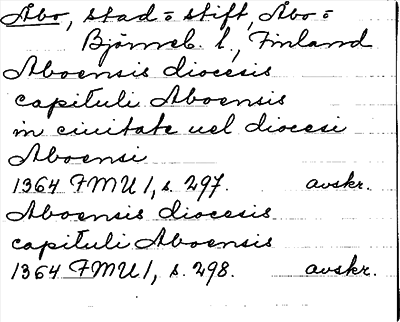 Åbo, stad = stift, Åbo =
Björneb. l., Finland
Aboensis diocesis
capituli Aboensis
in ciuitate uel diocesi
Aboensi
1364 FMU 1, s. 297. avskr.
Aboensis diocesis
capituli Aboensis
1364 FMU 1, s. 298. avskr.